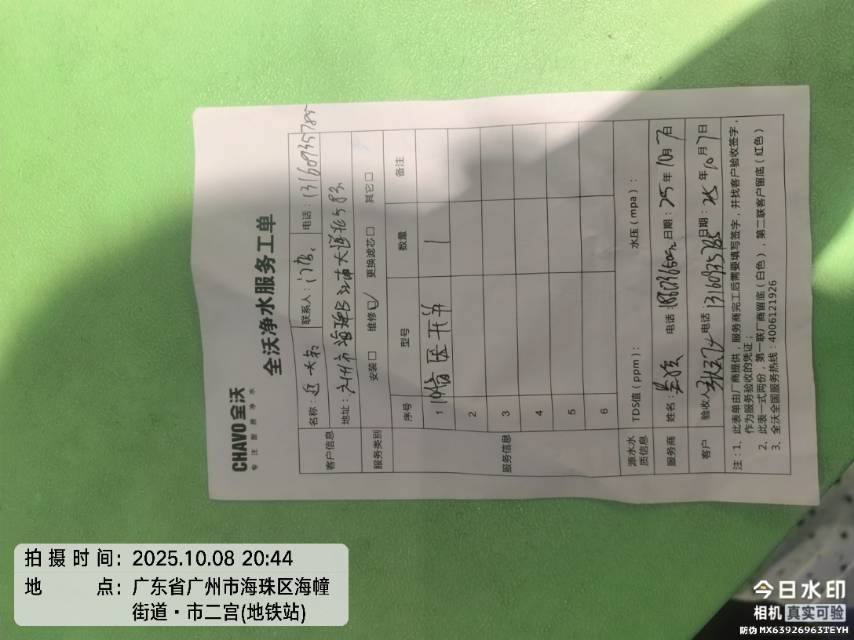 CHAVO 全沃
专注商用净水
全沃净水服务工单
客户信息
名称:
联系人:
电话:13160935785
地址:广州市海珠区江南大道北
服务类别
安装□ 维修☑ 更换滤芯□ 其它□
服务信息
序号 型号 数量 备注
1 1
2
3
4
5
6
源水水质信息
TDS值(ppm): 水压(mpa):
服务商 姓名: 电话 日期:25年10月7日
客户 验收人 电话 13160935785 日期:25年10月7日
注:1、此表单由厂商提供,服务商完工后需要填写签字,并找客户验收签字,
作为服务验收的凭证;
2、此表一式两份,第一联厂商留底(白色),第二联客户留底(红色)
3、全沃全国服务热线:4006121926
拍摄时间:2025.10.08 20:44
地点:广东省广州市海珠区海幢
街道·市二宫(地铁站)
今日水印
相机 真实可验
防伪 MX63926963TEYH